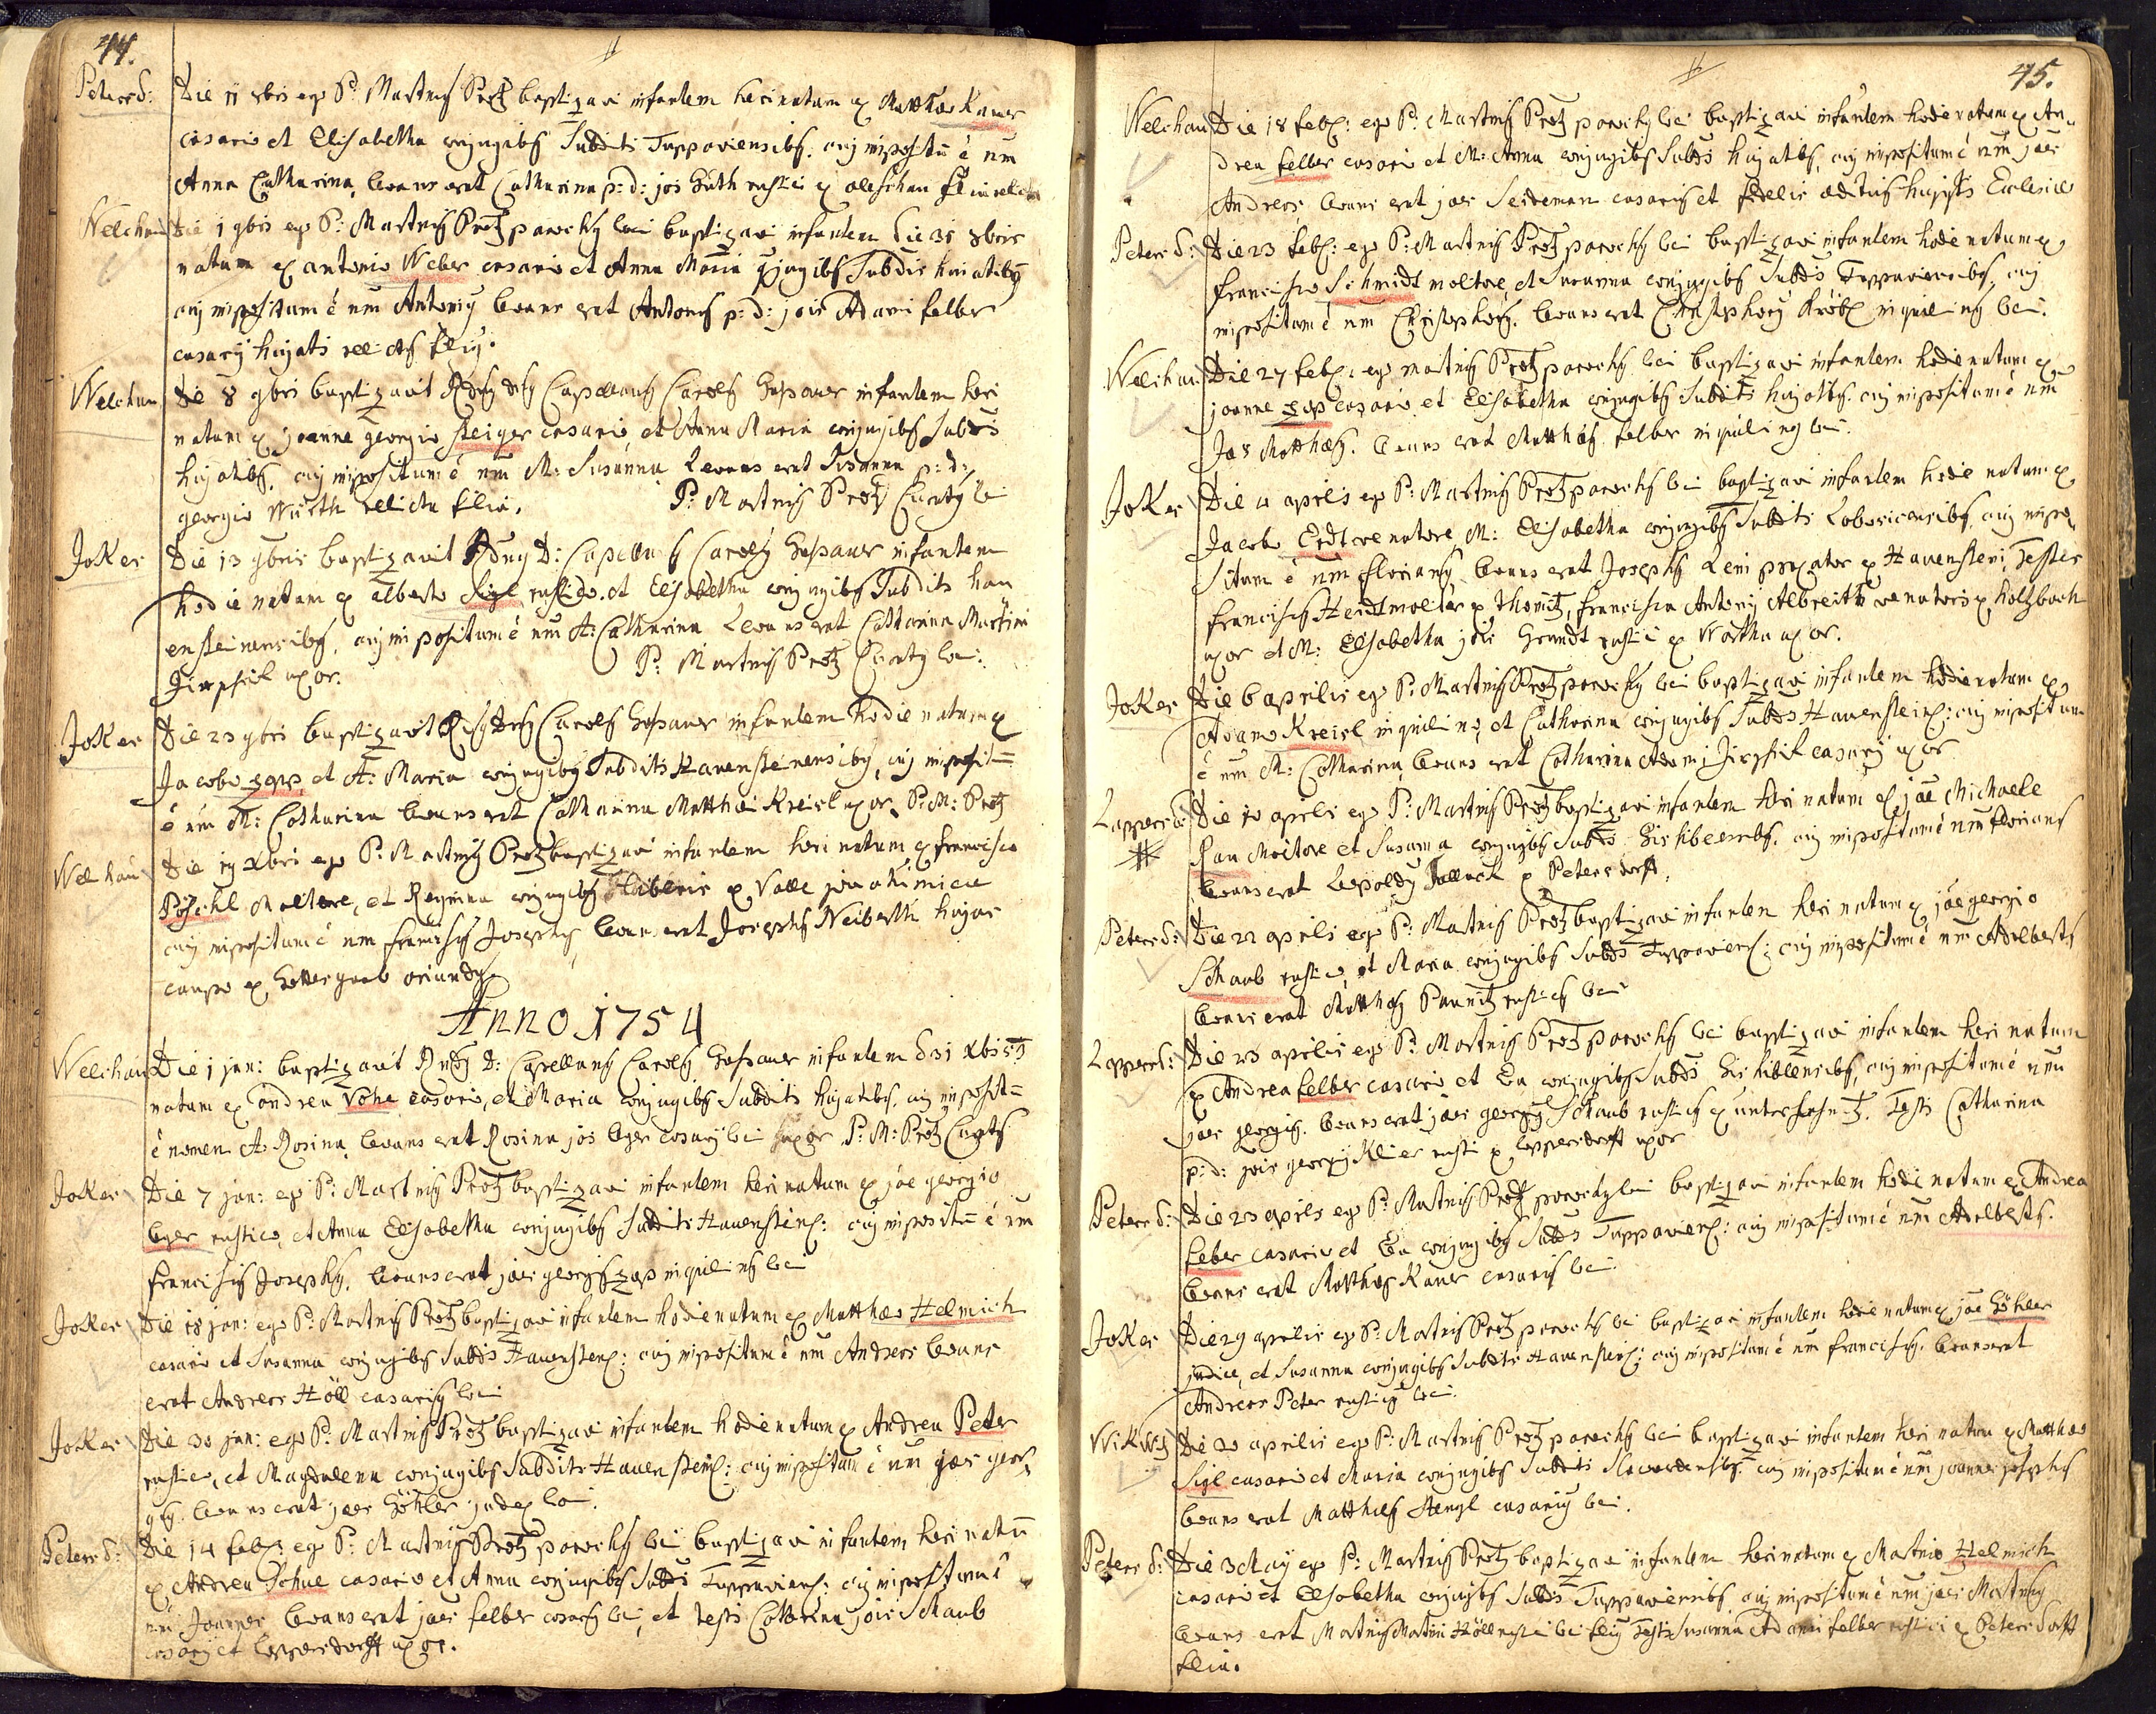 44.
Petersd: Die 11 8bris ego P: Martinus Protz baptizavi infantem heri natum ex Matthæo Kauer
casario et Elisabetha conjugibs Subditis Tuppaviensibs. cuj impositū ē nm
Anna Catharina, levans erat Catharina p: d: jois Güth rustici ex aleschau filia relicta
Welchau Die 1 9bris ego P: Martinus Protz parochus loci baptizavi infantem die 31 8bris
natum ex antonio Weber casario et Anna Maria conjugibs Subdis hujatibs
cuj impositum ē nm Antonius levans erat Antonius p: d: jois Adami felber
casarij hujatis relictus filius.
Welchau Die 8 9bri baptizavit Rdus dns Capellanus Carolus Gossauer infantem heri
natum ex joanne georgio steiger casario et Anna Maria conjugibs Subdis
hujatibs, cuj impositum ē nm M: Susanna Levans erat Susanna p: d:
georgio Würth relicta filia. P: Martinus Protz Curatus loci
Joker Die 13 9bris baptizavit Rdus D: Capellanus Carolus Gossauer infantem
hodie natum ex alberto Sigl rustico, et Elisabetha conjugibs Subditis hau
ensteinensibs, cuj impositum ē nm A: Catharina Levans erat Catharina Martini
Zirpsick uxor. P: Martinus Protz Curatus loci:
Joker Die 23 9bri baptizavit Rdus Dnus Carolus Gossauer infantem hodie natum ex
Jacobo zapp, et A: Maria conjugibs Subditis Hauensteinensibs, cuj impositū
ē nm M: Catharina levans erat Catharina Matthæi Kreisl uxor. P: M: Protz
Welchau Die 19 Xbri ego P: Martinus Protz baptizavi infantem heri natum ex francisco
Pöschl Molitore, et Regina conjugibs liberis ex Valle joachimica
cuj impositum ē nm franciscus Josephus, levans erat Josephus Neiberth hujas
caupo ex Gottesgaab oriundus
Anno 1754
Welchau Die 1 jan: baptizavit Rndus D: Capellanus Carolus Gossauer infantem d 31 Xbis 53
natum ex andrea Vohe casario, et Maria conjugibs Subditis hujatibs, cuj impositū
ē nomen A: Rosina, levans erat Rosina jois leger casarij loci uxor. P: M: Protz Curatus
Joker Die 7 jan: ego P: Martinus Protz baptizavi infantem heri natum ex joe georgio
leger rustico, et Anna Elisabetha conjugibs Subditis Hauenstein: cuj impositū ē nm
franciscus Josephus, levans erat joes georgius zapp inquilinus loci
Joker Die 18 jan: ego P: Martinus Protz baptizavi infantem hodie natum ex Matthæo Helmich
casario et Susanna conjugibs Subdis Hauenstein: cuj impositum ē nm Andreas levans
erat Andreas Höll casarius loci
Joker Die 30 jan: ego P: Martinus Protz baptizavi infantem hodie natum ex Andrea Peter
rustico, et Magdalena conjugibs Subditis Hauenstein: cuj impositum ē nm joes geor
gus. levans erat joes Göhler judex loci.
Petersd: Die 14 feb: ego P: Martinus Protz parochus loci baptizavi infantem heri natū
ex Andrea Schue casario et Anna conjugibs Subdis Tuppaviens: cuj impositum ē
nm Joannes levans erat joes felber casarius loci, et testis Catharina jois Schaub
casarij et leppersdorff uxor.
45.
Welchau Die 18 feb: ego P: Martinus Protz parochus loci baptizavi infantem hodie natum ex An
drea felber casario et M: Anna conjugibs Subdis hujatibs, cuj impositum ē nm joes
Andreas levans erat joes Seideman casarius et fidelis ædituus hujatis Ecclesiæ
Petersd: Die 23 feb: ego P: Martinus Protz parochus loci baptizavi infantem hodie natum ex
francisco Schmidt molitore, et Susanna conjugibs Subdis Tuppaviensibs, cuj
impositum ē nm Christophorus. levans erat Christophorus Kröbl inquilinus loci.
Welchau Die 27 feb: ego martinus Protz parochus loci baptizavi infantem hodie natum ex
joanne zapp casario, et Elisabetha conjugibs Subditis hujatibs. cuj impositum ē nm
Jas Matthæus. levans erat Matthæs felber inquilinus loci.
Joker Die 4 aprilis ego P: Martinus Protz parochus loci baptizavi infantem hodie natum ex
Jacobo Erdt venatore M: Elisabetha conjugibs Subditis Laboricensibs, cuj impo
situm ē nm florianus levans erat Josephus Leni praxator ex Hauenstein, Testes
franciscus Heidt molitor ex thomitz, francisca Antonij Albreith venatoris ex holtzbach
uxor et M: Elisabetha jois Grundt rustici ex Wortha uxor.
Joker Die 6 aprilis ego P: Martinus Protz parochus loci baptizavi infantem hodie natum ex
Adamo Kreisl inquilino, et Catharina conjugibs Subdis Hauenstein: cuj impositum
ē nm M: Catharina, levans erat Catharina Adami Zirpsick casarij uxor
Lappersd: Die 10 aprilis ego P: Martinus Protz baptizavi infantem heri natum ex joe Michaele
Rau Molitore et Susanna conjugibs Subdis Gishiblensibs, cuj impositum ē nm florians
levans erat Leopoldus Pollack ex Petersdorff.
Petersd: Die 22 aprilis ego P: Martinus Protz baptizavi infantem heri natum ex joe georgio
Schaub rustico, et Maria conjugibs Subdis Tuppaviens: cuj impositum ē nm Adelberts
levans erat Matthæs Paunitz rusticus loci
Lappersd: Die 23 aprilis ego P: Martinus Protz parochus loci baptizavi infantem heri natum
ex Andrea felber casario et Eva conjugibs Subdis Gishiblensibs, cuj impositum ē nm
joes georgius. levans erat joes georgius Schaub rusticus ex unterlosnitz. Testis Catharina
p: d: jois georgij Klier rusti ex leppersdorff uxor
Petersd: Die 23 aprilis ego P: Martinus Protz parochus loci baptizavi infantem hodie natum ex Andrea
feber casario et Eva conjugibs Subdis Tuppaviens: cuj impositum ē nm Adelberts.
levans erat Matthæs Kauer casarius loci.
Joker Die 29 aprilis ego P: Martinus Protz parochus loci baptizavi infantem hodie natum ex joe Göhler
judice, et Susanna conjugibs Subditis Hauenstein: cuj impositum ē nm franciscus. levans erat
Andreas Peter rusticus loci.
Wikwitz Die 20 aprilis ego P: Martinus Protz parochus loci baptizavi infantem heri natum ex Matthæo
Sigl casario et Maria conjugibs Subditis cuj impositum ē nm joannes josephus
levans erat Matthæs Stengl casarius loci.
Petersd: Die 3 May ego P: Martinus Protz baptizavi infantem heri natum ex Martino Helmich
casario et Elisabetha conjugibs Subdis Tuppaviensibs cuj impositum ē nm joes Martinus
levans erat Martinus Martini Höll rustici loci filius Testis Susanna Adami felber rustici ex Petersdorff
filia.